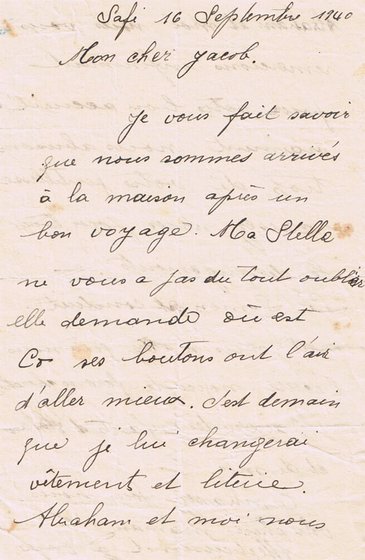 Safi 16 Septembre 1940
Mon cher Jacob.
Je vous fait savoir
que nous sommes arrivés
à la maison après un
bon voyage. Ma Stella
ne vous a pas du tout oublier
elle demande où est
Co ses boutons ont l'air
d'aller mieux. c'est demain
que je lui changerai
vêtements et literie.
Abraham et moi nous